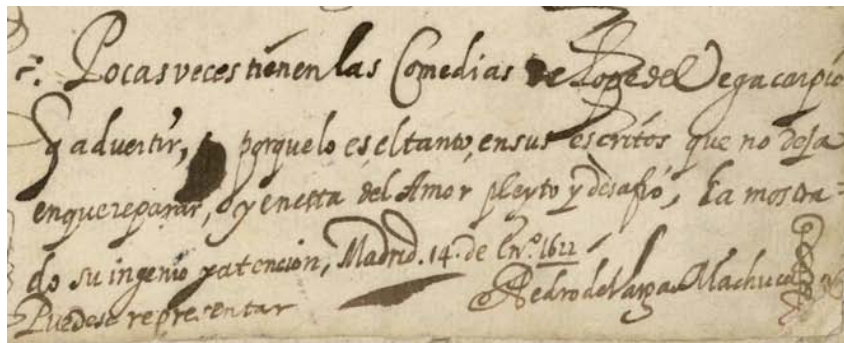 Pocas veces tienen las Comedias de Lope de Vega carpio
q advertir, porque lo es el tanto, en sus escritos que no deja
en que reparar, y en esta del Amor pleyto y desafio, ha mostra-
do su ingenio y atencion, Madrid. 14. de Enº. 1622
Puedese representar Pedro de Vargas Machuca